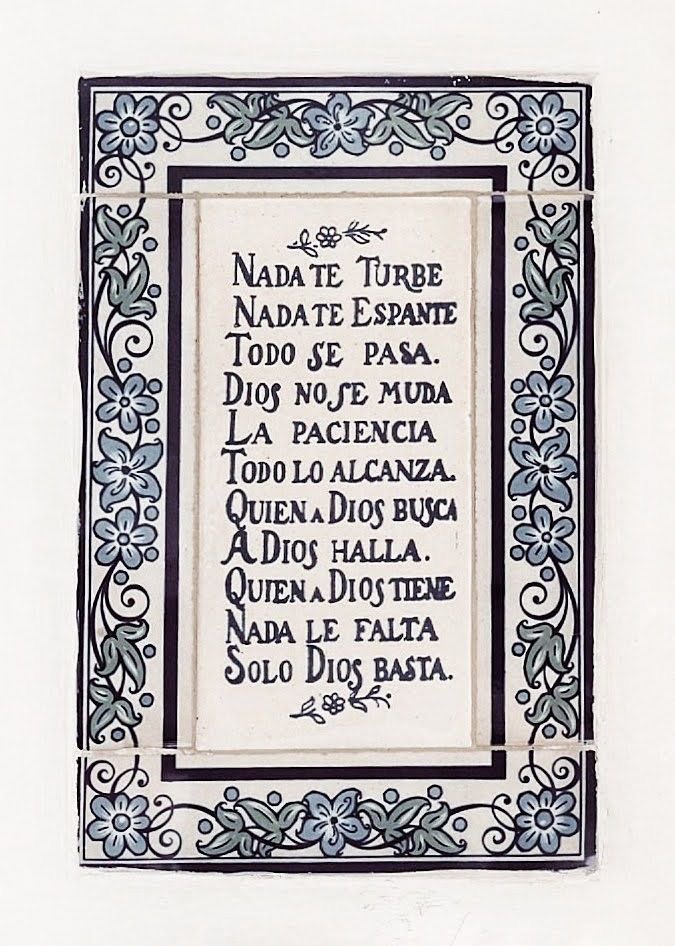 NADA TE TURBE
NADA TE ESPANTE
TODO SE PASA.
DIOS NO SE MUDA
LA PACIENCIA
TODO LO ALCANZA.
QUIEN A DIOS BUSCA
A DIOS HALLA.
QUIEN A DIOS TIENE
NADA LE FALTA
SOLO DIOS BASTA.